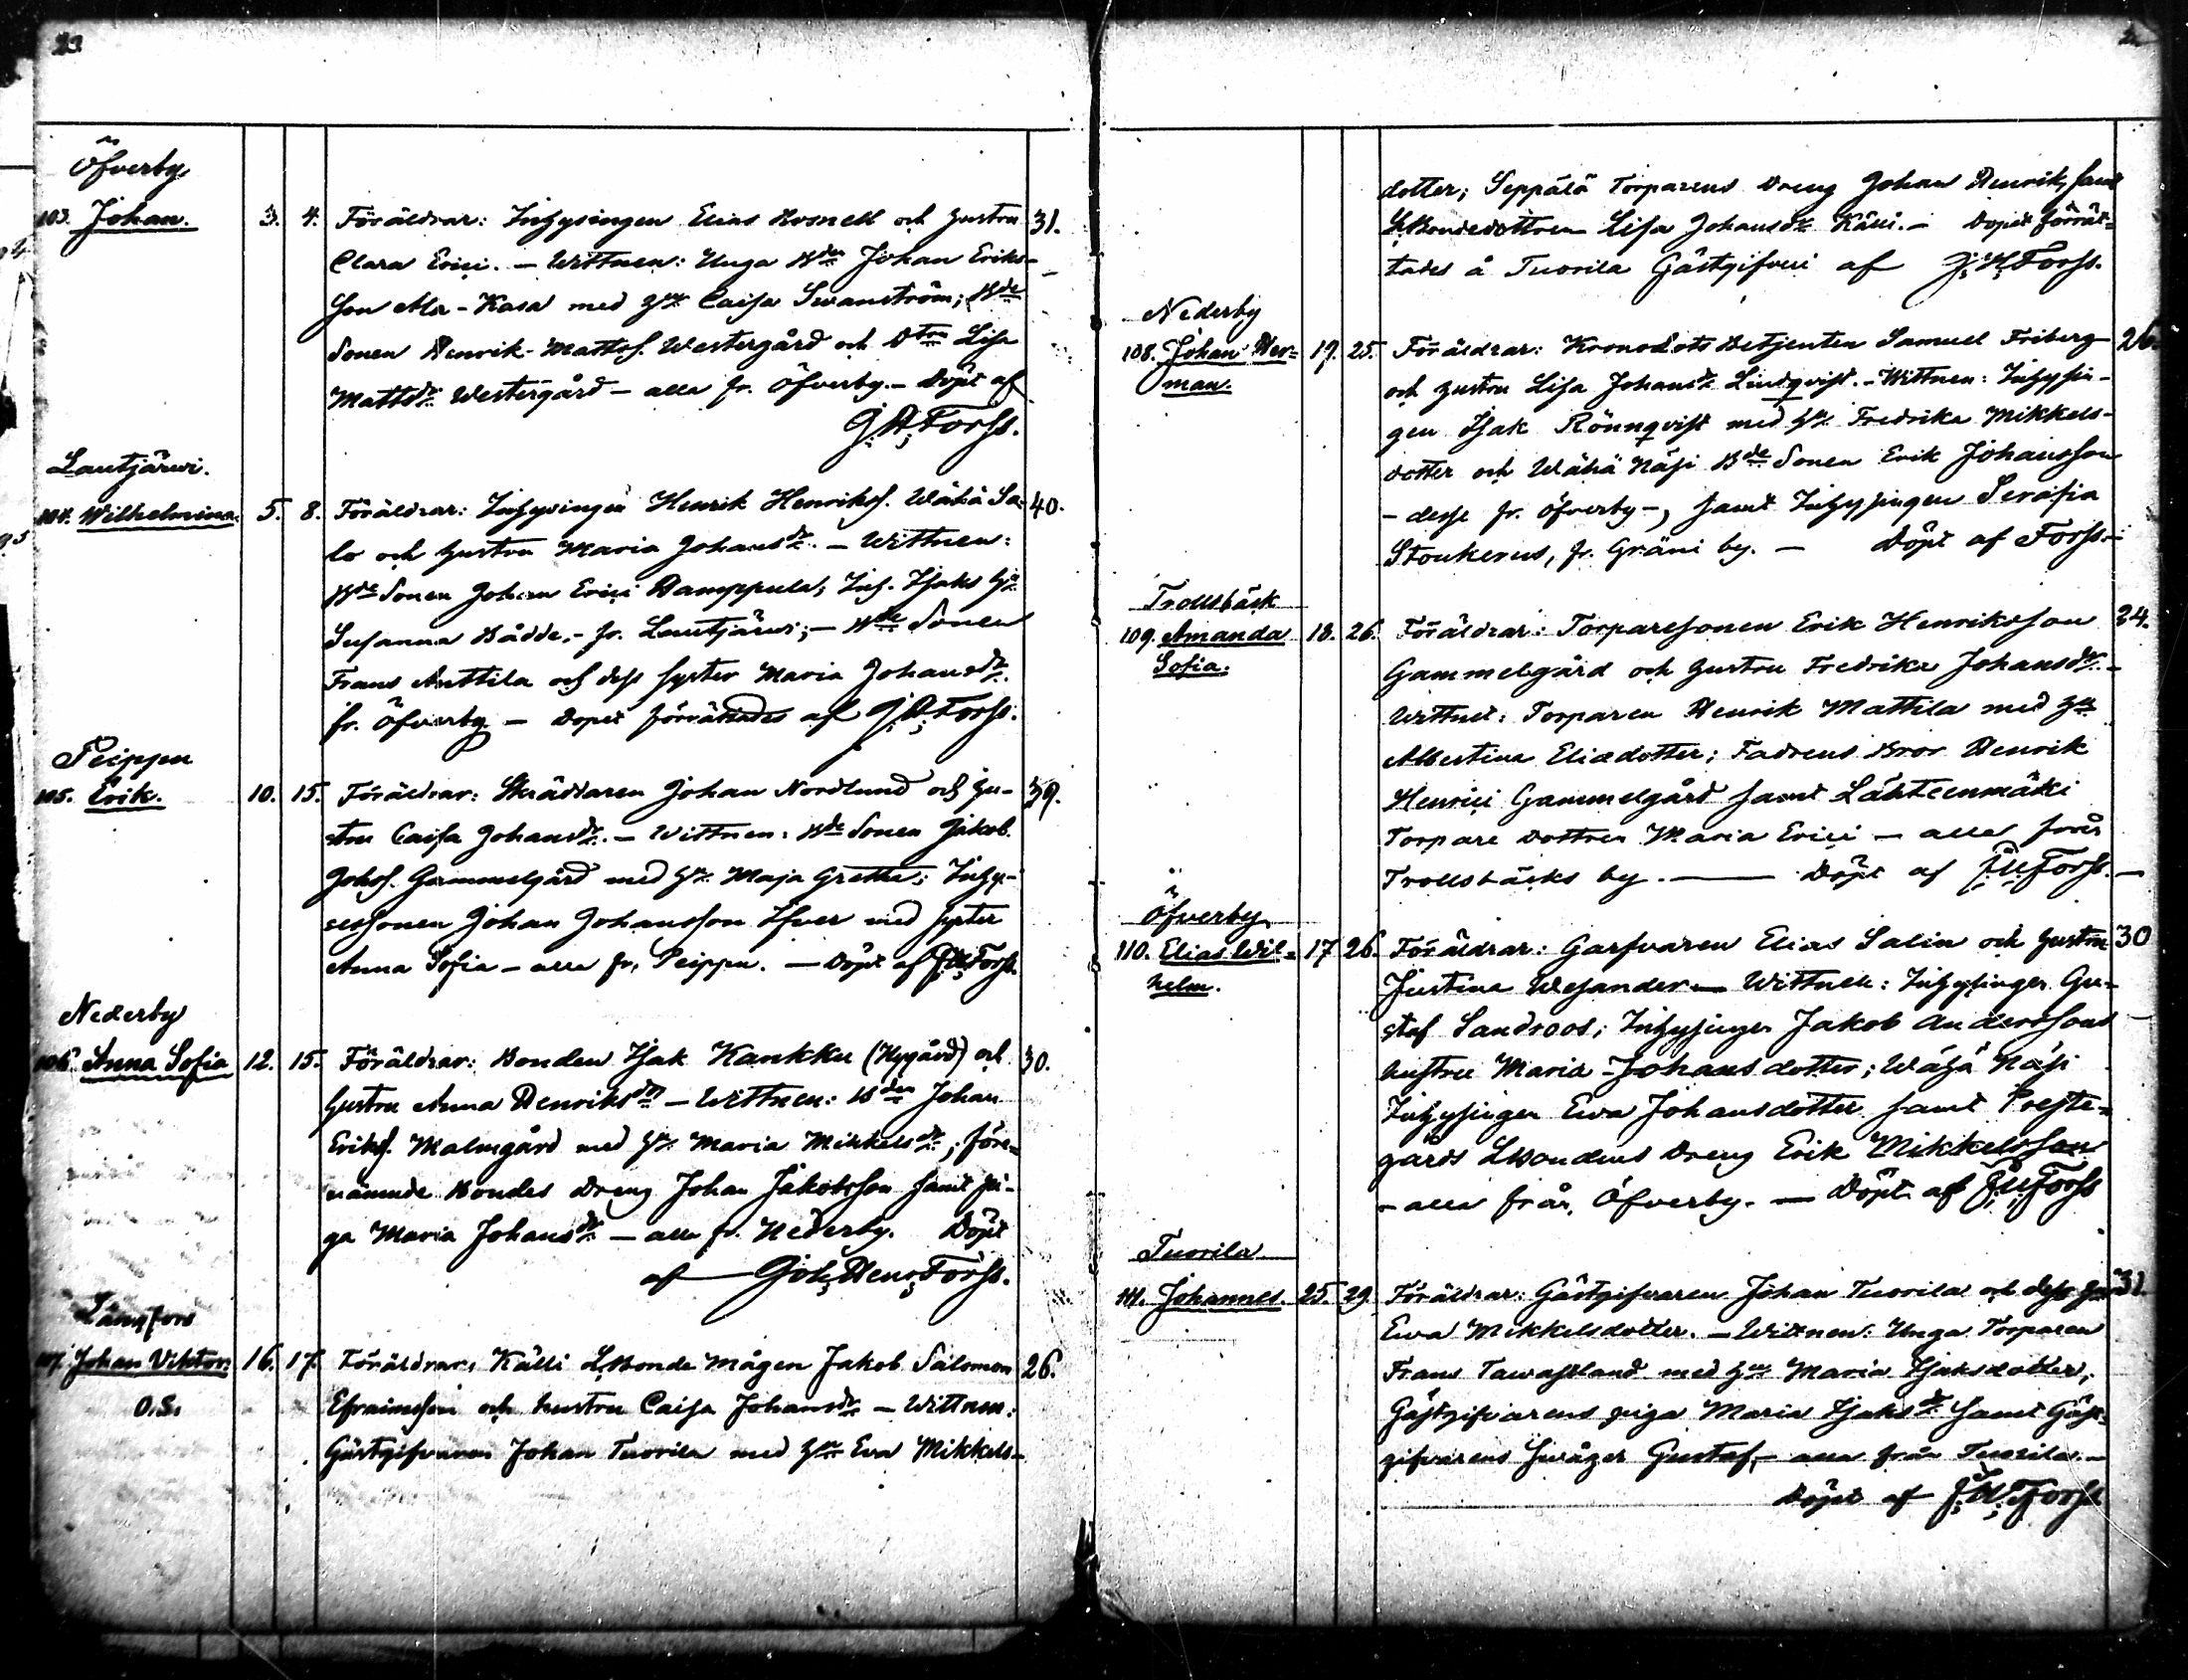 23
Öfverby
103. Johan. 3. 4. Föräldrar: Inhysingen Elias Rosnell och hustru 31.
Clara Erici. — Wittnen: Unga Bden Johan Eriks-
son Ala-Kasa med h:u Caisa Swanström; Bde
Sonen Henrik Mattss. Westergård och Dtrn Lisa
Mattsdr Westergård — alla fr. Öfverby. — Döpt af
J. H. Forss.
Lautjärwi.
104. Wilhelmina. 5. 8. Föräldrar: Inhysingen Henrik Henrikss. Wähä Sa- 40.
lo och hustru Maria Johansdr. — Wittnen:
Bde Sonen Johan Erici Hamppula; Inh. Isaks h:u
Susanna Bådde, - fr. Lautjärwi; — Bde Sonen
Frans Anttila och dess syster Maria Johansdr.
fr. Öfverby — Dopet förrättades af J. H. Forss.
Peippu
105. Erik. 10. 15. Föräldrar: Skräddaren Johan Nordlund och hu- 39.
stru Caisa Johansdr. — Wittnen: Bde Sonen Jakob
Johss. Gammelgård med h:u Maja Gretha; Inhy-
sessonen Johan Johansson Ifver med syster
Anna Sofia — alla fr. Peippu. — Döpt af J. H. Forss.
Nederby
106. Anna Sofia 12. 15. Föräldrar: Bonden Isak Kankku (Nygård) och 30.
hustru Anna Henriksdr — Wittnen: Bden Johan
Erikss. Malmgård med h:u Maria Mikkelsdr; före-
nämnde Bondes Dreng Johan Jakobsson samt pi-
ga Maria Johansdr. — alla fr. Nederby. Döpt
af — Joh. Henr. Forss.
Långfors
107. Johan Viktor. 16. 17. Föräldrar: Källi LBonde Mågen Jakob Salomon 26.
O.S. Efraimsson och hustru Caisa Johansdr — Wittnen:
Gästgifvaren Johan Tuorila med h:u Eva Mikkels-
dotter; Seppälä Torparens Dreng Johan Henrik, samt
LBondedottren Lisa Johansdr Källi. — Dopet förrät-
tades å Tuorila Gästgifveri af J. H. Forss.
Nederby
108. Johan Her- 19. 25. Föräldrar: Kronolots Betjenten Samuel Friberg 26.
man. och hustru Lisa Johansdr Lindqvist. — Wittnen: Inhysin-
gen Isak Rönnqvist med h:u Fredrika Mikkels-
dotter och Wähä Näsi Bde Sonen Erik Johansson
— desse fr. Öfverby —, samt Inhysingen Serafia
Stoukerus, fr. Gräni by. — Döpt af Forss. —
Trollsbäck
109. Amanda 18. 26. Föräldrar: Torparesonen Erik Henriksson 24.
Sofia. Gammelgård och hustru Fredrika Johansdr. —
Wittnen: Torparen Henrik Mattila med h:u
Albertina Eliædotter; Fadrens Bror Henrik
Henrici Gammelgård samt Lähteenmäki
Torpare Dottren Maria Erici — alla från
Trollsbäcks by. — Döpt af J. H. Forss. —
Öfverby
110. Elias Wil- 17 26. Föräldrar: Garfvaren Elias Salin och hustru 30
helm. Justina Wesander — Wittnen: Inhysingen Gu-
staf Sandroos; Inhysingen Jakob Anderssons
hustru Maria Johansdotter; Wähä Näsi
Inhysingen Ewa Johansdotter samt Preste-
gårds LBondens Dreng Erik Mikkelsson
— alla från Öfverby. — Döpt af J. H. Forss
Tuorila
111. Johannes. 25. 29. Föräldrar: Gästgifvaren Johan Tuorila och dess h:u 31.
Ewa Mikkelsdotter. — Wittnen: Unga Torparen
Frans Tawastland med h:u Maria Isaksdotter,
Gästgifvarens piga Maria Isaksdr samt Gäst-
gifvarens Swåger Gustaf, — alla från Tuorila. —
Döpt af J. H. Forss